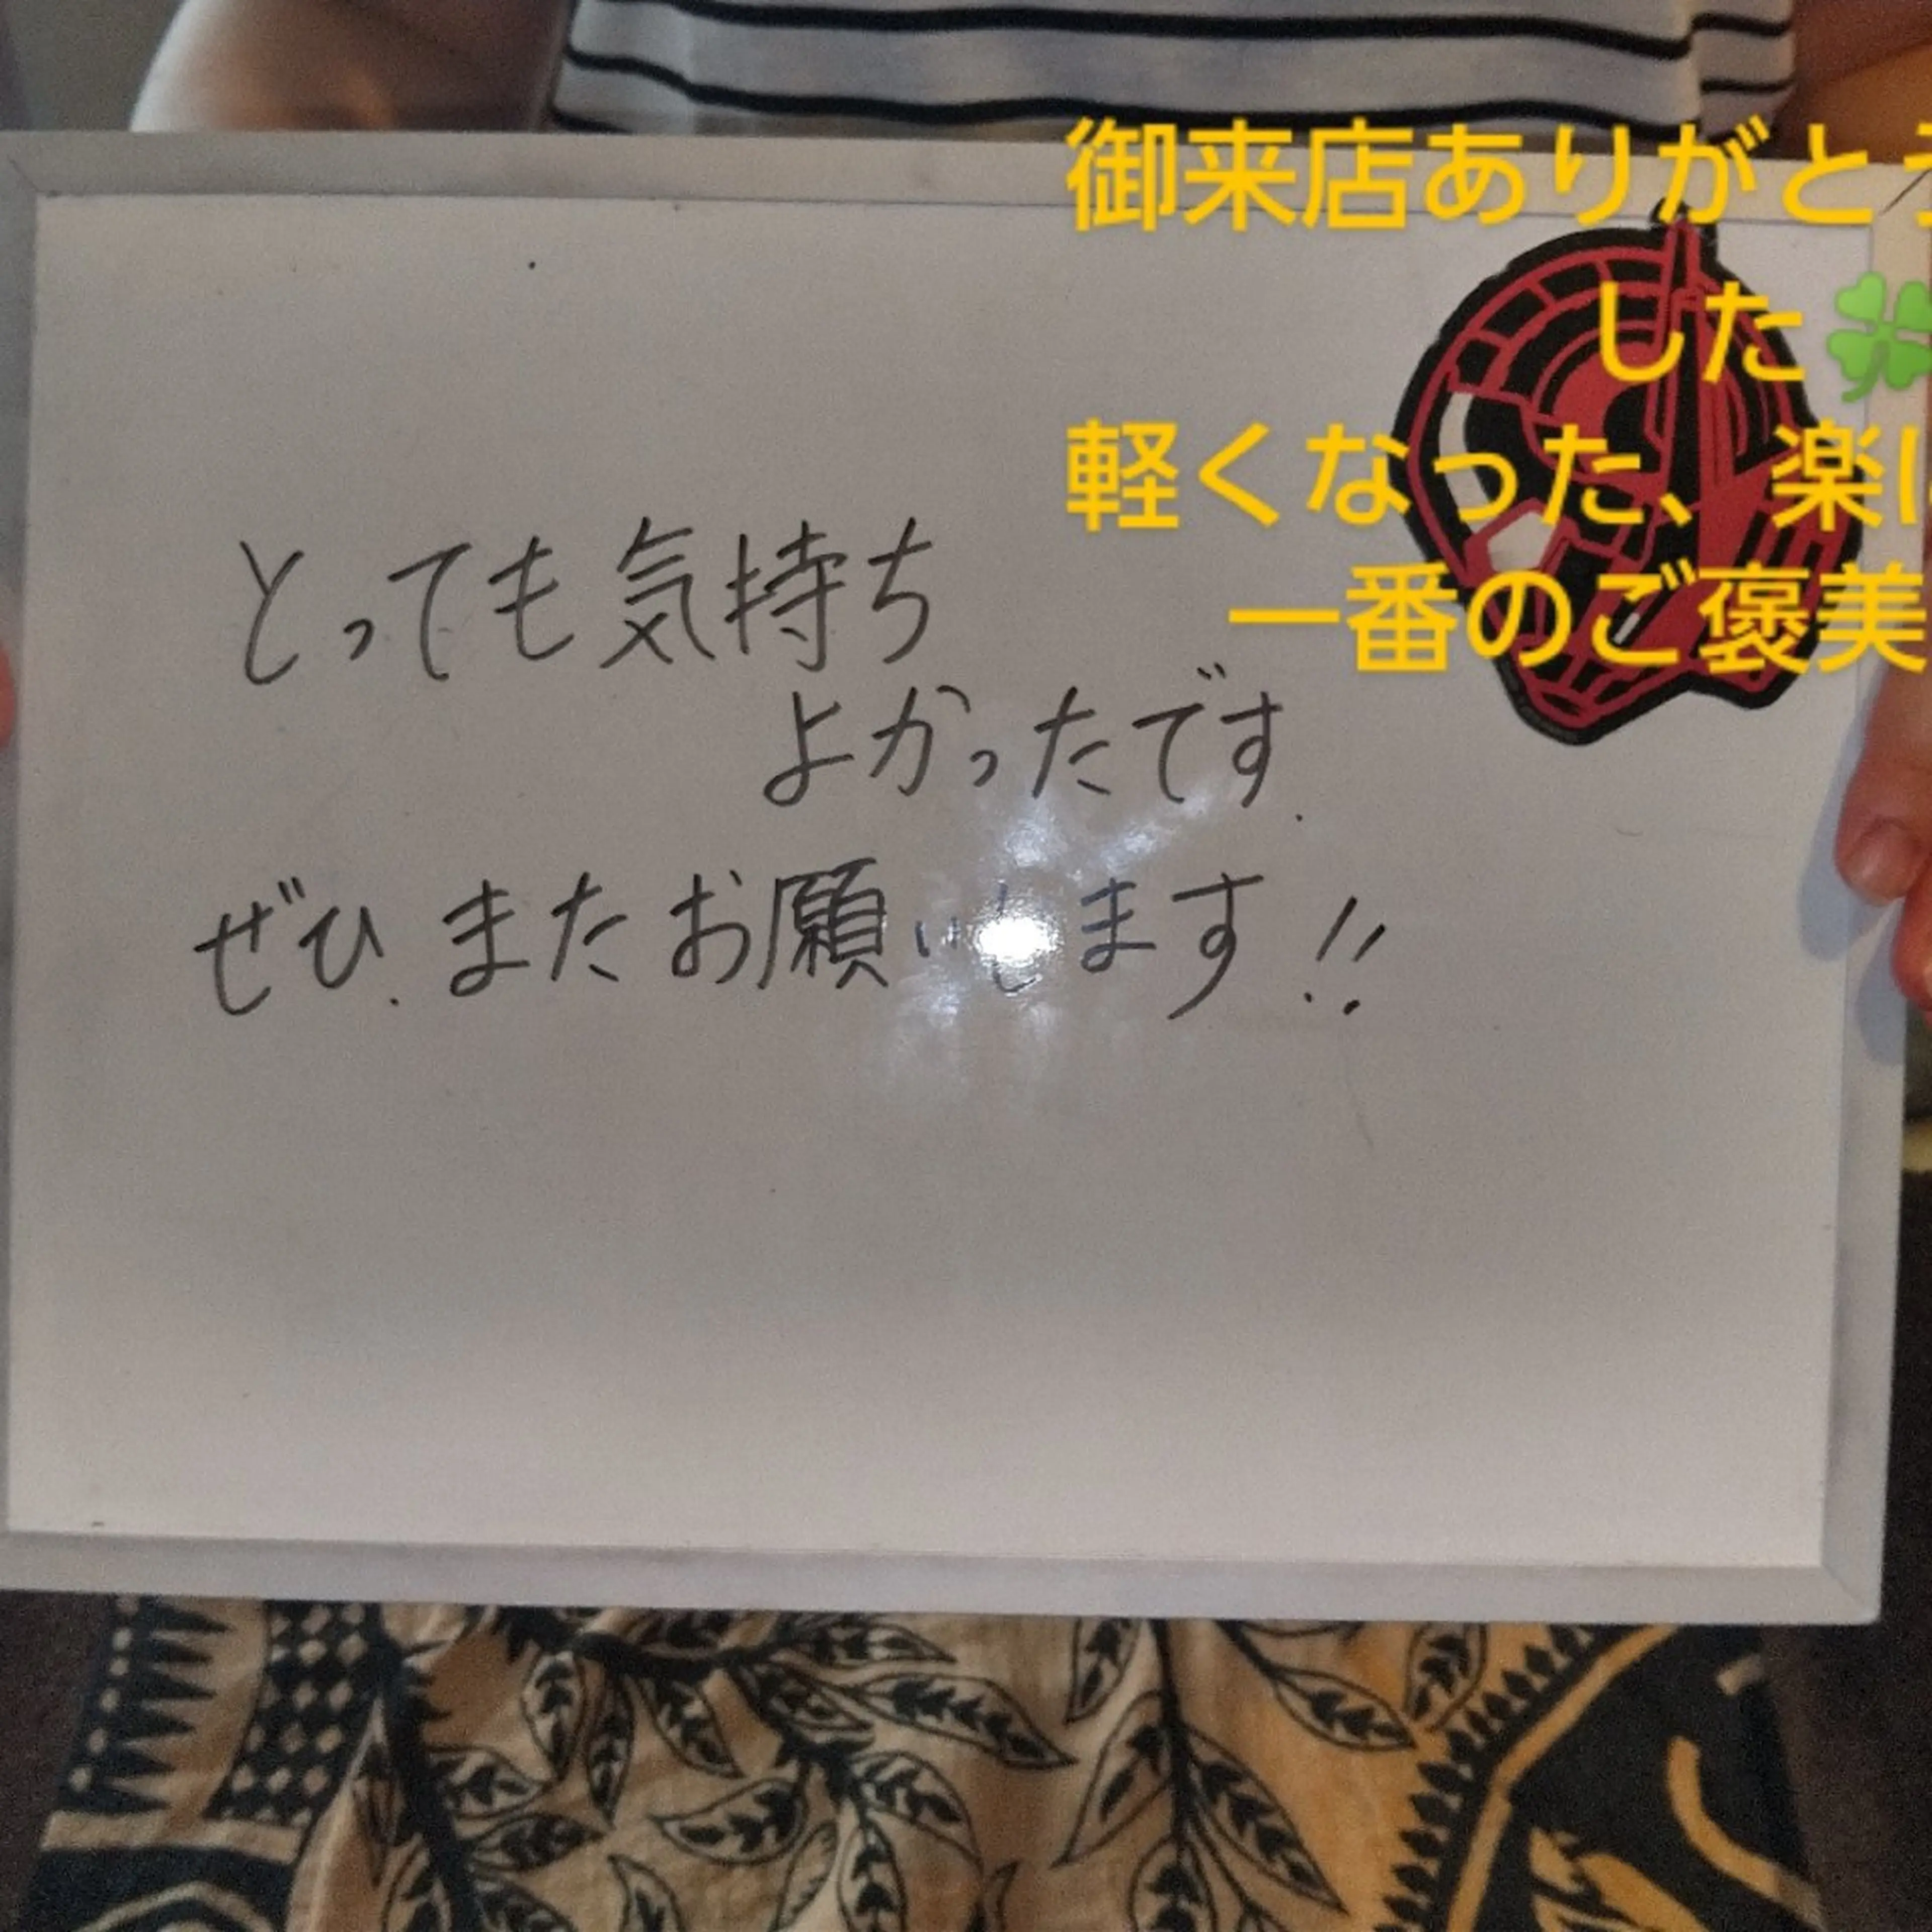 御来店ありがとう
した🍀
軽くなった、楽に
一番のご褒美
とっても気持ち
よかったです.
ぜひ.またお願いします!!